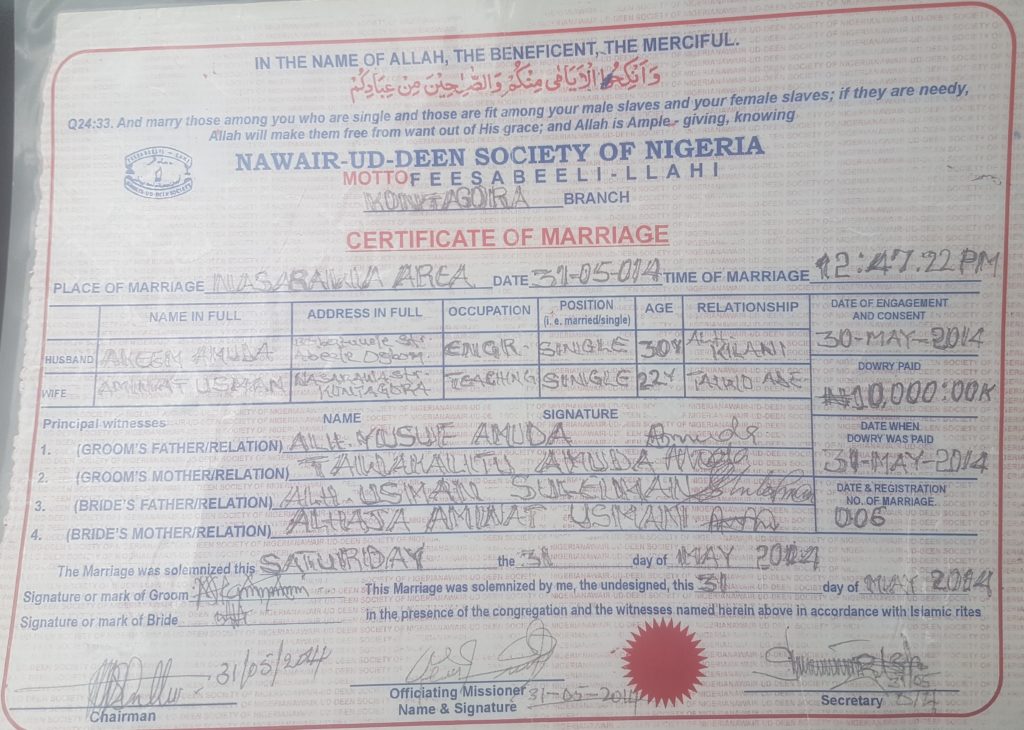 IN THE NAME OF ALLAH, THE BENEFICENT, THE MERCIFUL.
وَأَنكِحُوا الْأَيَامَىٰ مِنكُمْ وَالصَّالِحِينَ مِنْ عِبَادِكُمْ
Q24:33. And marry those among you who are single and those are fit among your male slaves and your female slaves; if they are needy,
Allah will make them free from want out of His grace; and Allah is Ample - giving, knowing
NAWAIR-UD-DEEN SOCIETY OF NIGERIA
MOTTO FEESABEELI-LLAHI
KONTAGORA BRANCH
CERTIFICATE OF MARRIAGE
PLACE OF MARRIAGE NASARAWA AREA DATE 31-05-014 TIME OF MARRIAGE 12:47.22 PM
NAME IN FULL ADDRESS IN FULL OCCUPATION POSITION (i. e. married/single) AGE RELATIONSHIP DATE OF ENGAGEMENT AND CONSENT
HUSBAND AKEEM AMUDA ENGR. SINGLE 30Y ALH. KILANI 30-MAY-2014
WIFE AMINAT USMAN NASARAWA STR. KONTAGORA TEACHNG SINGLE 22Y DOWRY PAID ₦10,000:00K
Principal witnesses NAME SIGNATURE
1. (GROOM'S FATHER/RELATION) ALH. YUSUF AMUDA Amuda
DATE WHEN DOWRY WAS PAID
2. (GROOM'S MOTHER/RELATION) TAWAKALITU AMUDA
31-MAY-2014
3. (BRIDE'S FATHER/RELATION) ALH. USMAN SULEIMAN
DATE & REGISTRATION NO. OF MARRIAGE.
4. (BRIDE'S MOTHER/RELATION) ALHAJA AMINAT USMAN
006
The Marriage was solemnized this SATURDAY the 31 day of MAY 2014
Signature or mark of Groom This Marriage was solemnized by me, the undesigned, this 31 day of MAY 2014
Signature or mark of Bride in the presence of the congregation and the witnesses named herein above in accordance with Islamic rites
31/05/2014
Chairman
Officiating Missioner 31-05-2014
Name & Signature
Secretary